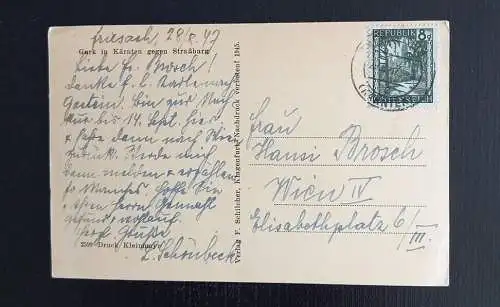 Friesach, 28/8 47
Gurk in Kärnten gegen Straßburg
Liebe Fr. Brosch!
Danke f. l. Karte aus
Gastein. Bin zur Nach
kur bis 14. Sept. hier
+ fahre dann nach Wien
zurück. Werde mich
dann melden + erzählen
so Manches. Hoffe Sie
+ Ihren Herrn Gemahl
gesund +
herzl. Grüße
L. Schönbeck
Z569 Druck Kleinmayr
Verlag F. Schilcher, Klagenfurt. Nachdruck verboten! 1945.
REPUBLIK
8g
ÖSTERREICH
Frau
Hansi Brosch
Wien IV
Elisabethplatz 6/
III.